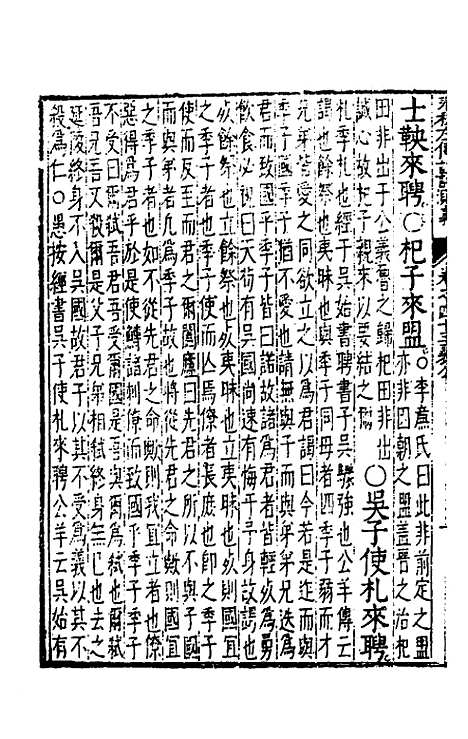 士鞅來聘〇杞子來盟〇李廉氏曰此非前定之盟
亦非因朝之盟蓋晉之治杞
田非出于公義魯之歸杞田非出
誠心故杞子親來以要結之耳〇吳子使札來聘
札季札也經于吳始書聘書于吳駸強也公羊傳云
謁也餘祭也夷昧也與季子同母者四季子弱而才
兄弟皆愛之同欲立之以為君謁曰今若是迮而
季子國季子猶不受也請無與子而與弟弟兄迭為
君而致國乎季子皆曰諾故諸為君者皆輕死為勇
飲食必祝曰天苟有吳國尚速有悔于予身故謁也
死餘祭也立餘祭也死夷昧也立夷昧也死則國宜
之季子者也季子使而亡焉僚者長庶也即之季子
使而反至而君之爾闔廬曰先君之所以不與子國
而與弟者凡為季子故也將從先君之命歟則國宜
之季子者也如不從先君之命歟則我宜立者也僚
惡得為君乎於是使鱄諸刺僚而致國乎季子季子
不受曰爾弒吾君吾受爾國是吾與爾為弒也爾弒
吾兄吾又殺爾是父子兄弟相弒終身無已也去之
延陵終身不入吳國故君子以其不受為義以其不
殺為仁〇愚按經書吳子使札來聘公羊云吳始有